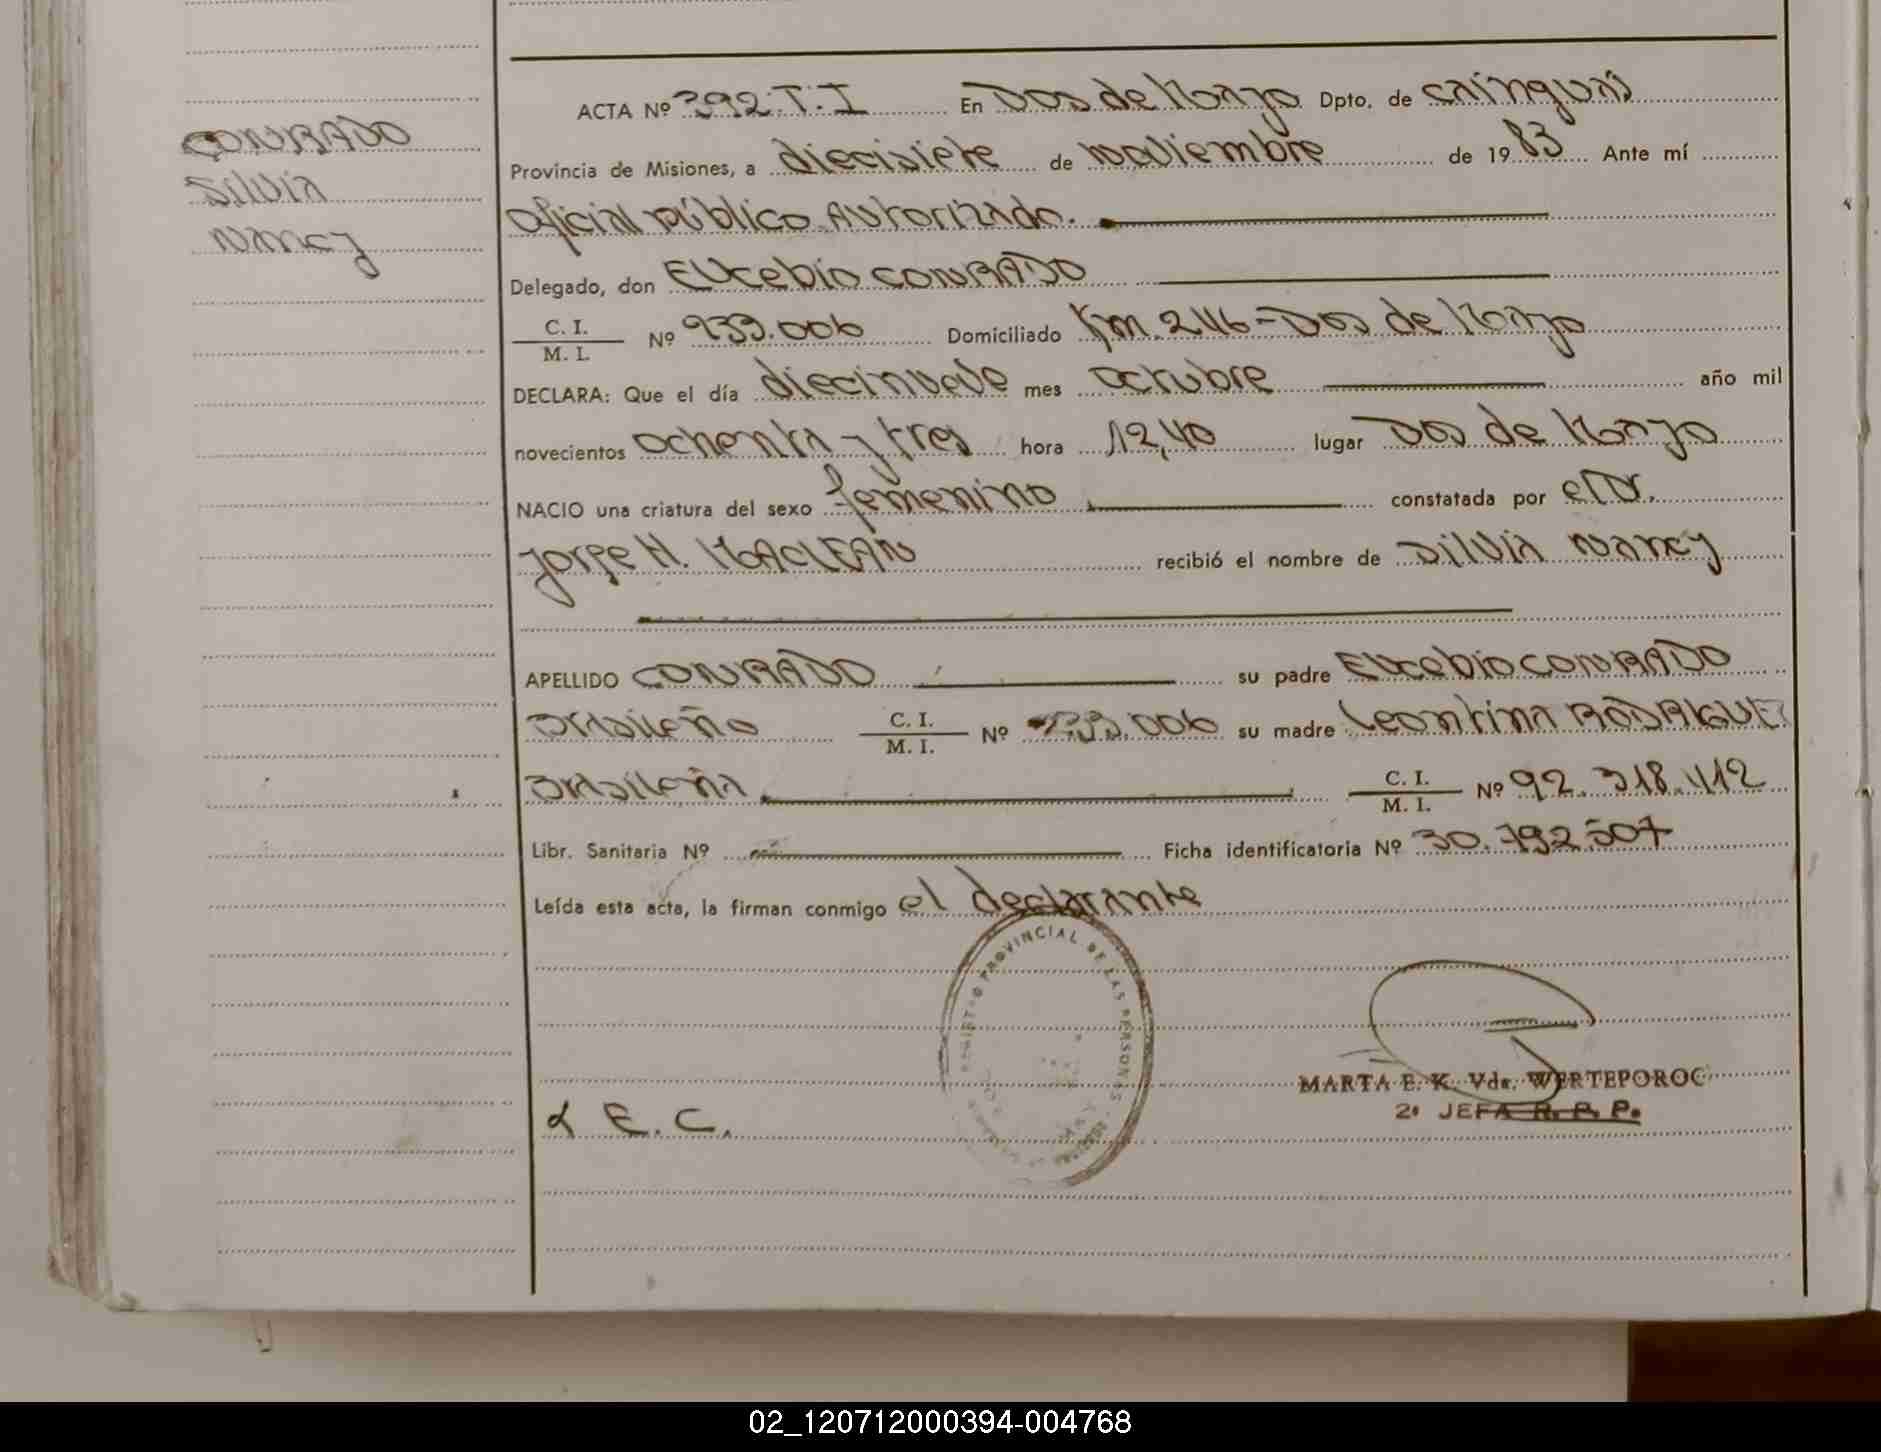 CONRADO
Silvia
Nancy
ACTA Nº 392.T.I En Dos de Mayo Dpto. de Cainguás
Provincia de Misiones, a diecisiete de noviembre de 1983 Ante mí
Oficial Público Autorizado.
Delegado, don EUcebio CONRADO
C. I.
M. I. Nº 939.006 Domiciliado Km. 246-Dos de Mayo
DECLARA: Que el día diecinueve mes octubre año mil
novecientos ochenta y tres hora 12,40 lugar Dos de Mayo
NACIO una criatura del sexo femenino constatada por el Dr.
Jorge H. MACLEAN recibió el nombre de Silvia Nancy
APELLIDO CONRADO su padre EUcebio CONRADO
brasileño C. I.
M. I. Nº 939.006 su madre Leontina RODRIGUEZ
brasileña C. I.
M. I. Nº 92.318.412
Libr. Sanitaria Nº Ficha identificatoria Nº 30.792.507
Leída esta acta, la firman conmigo el declarante
PROVINCIAL DE LAS PERSONAS
MARTA E. K. Vda. WERTEPOROC
2º JEFA R. P. P.
E. C.
02_120712000394-004768